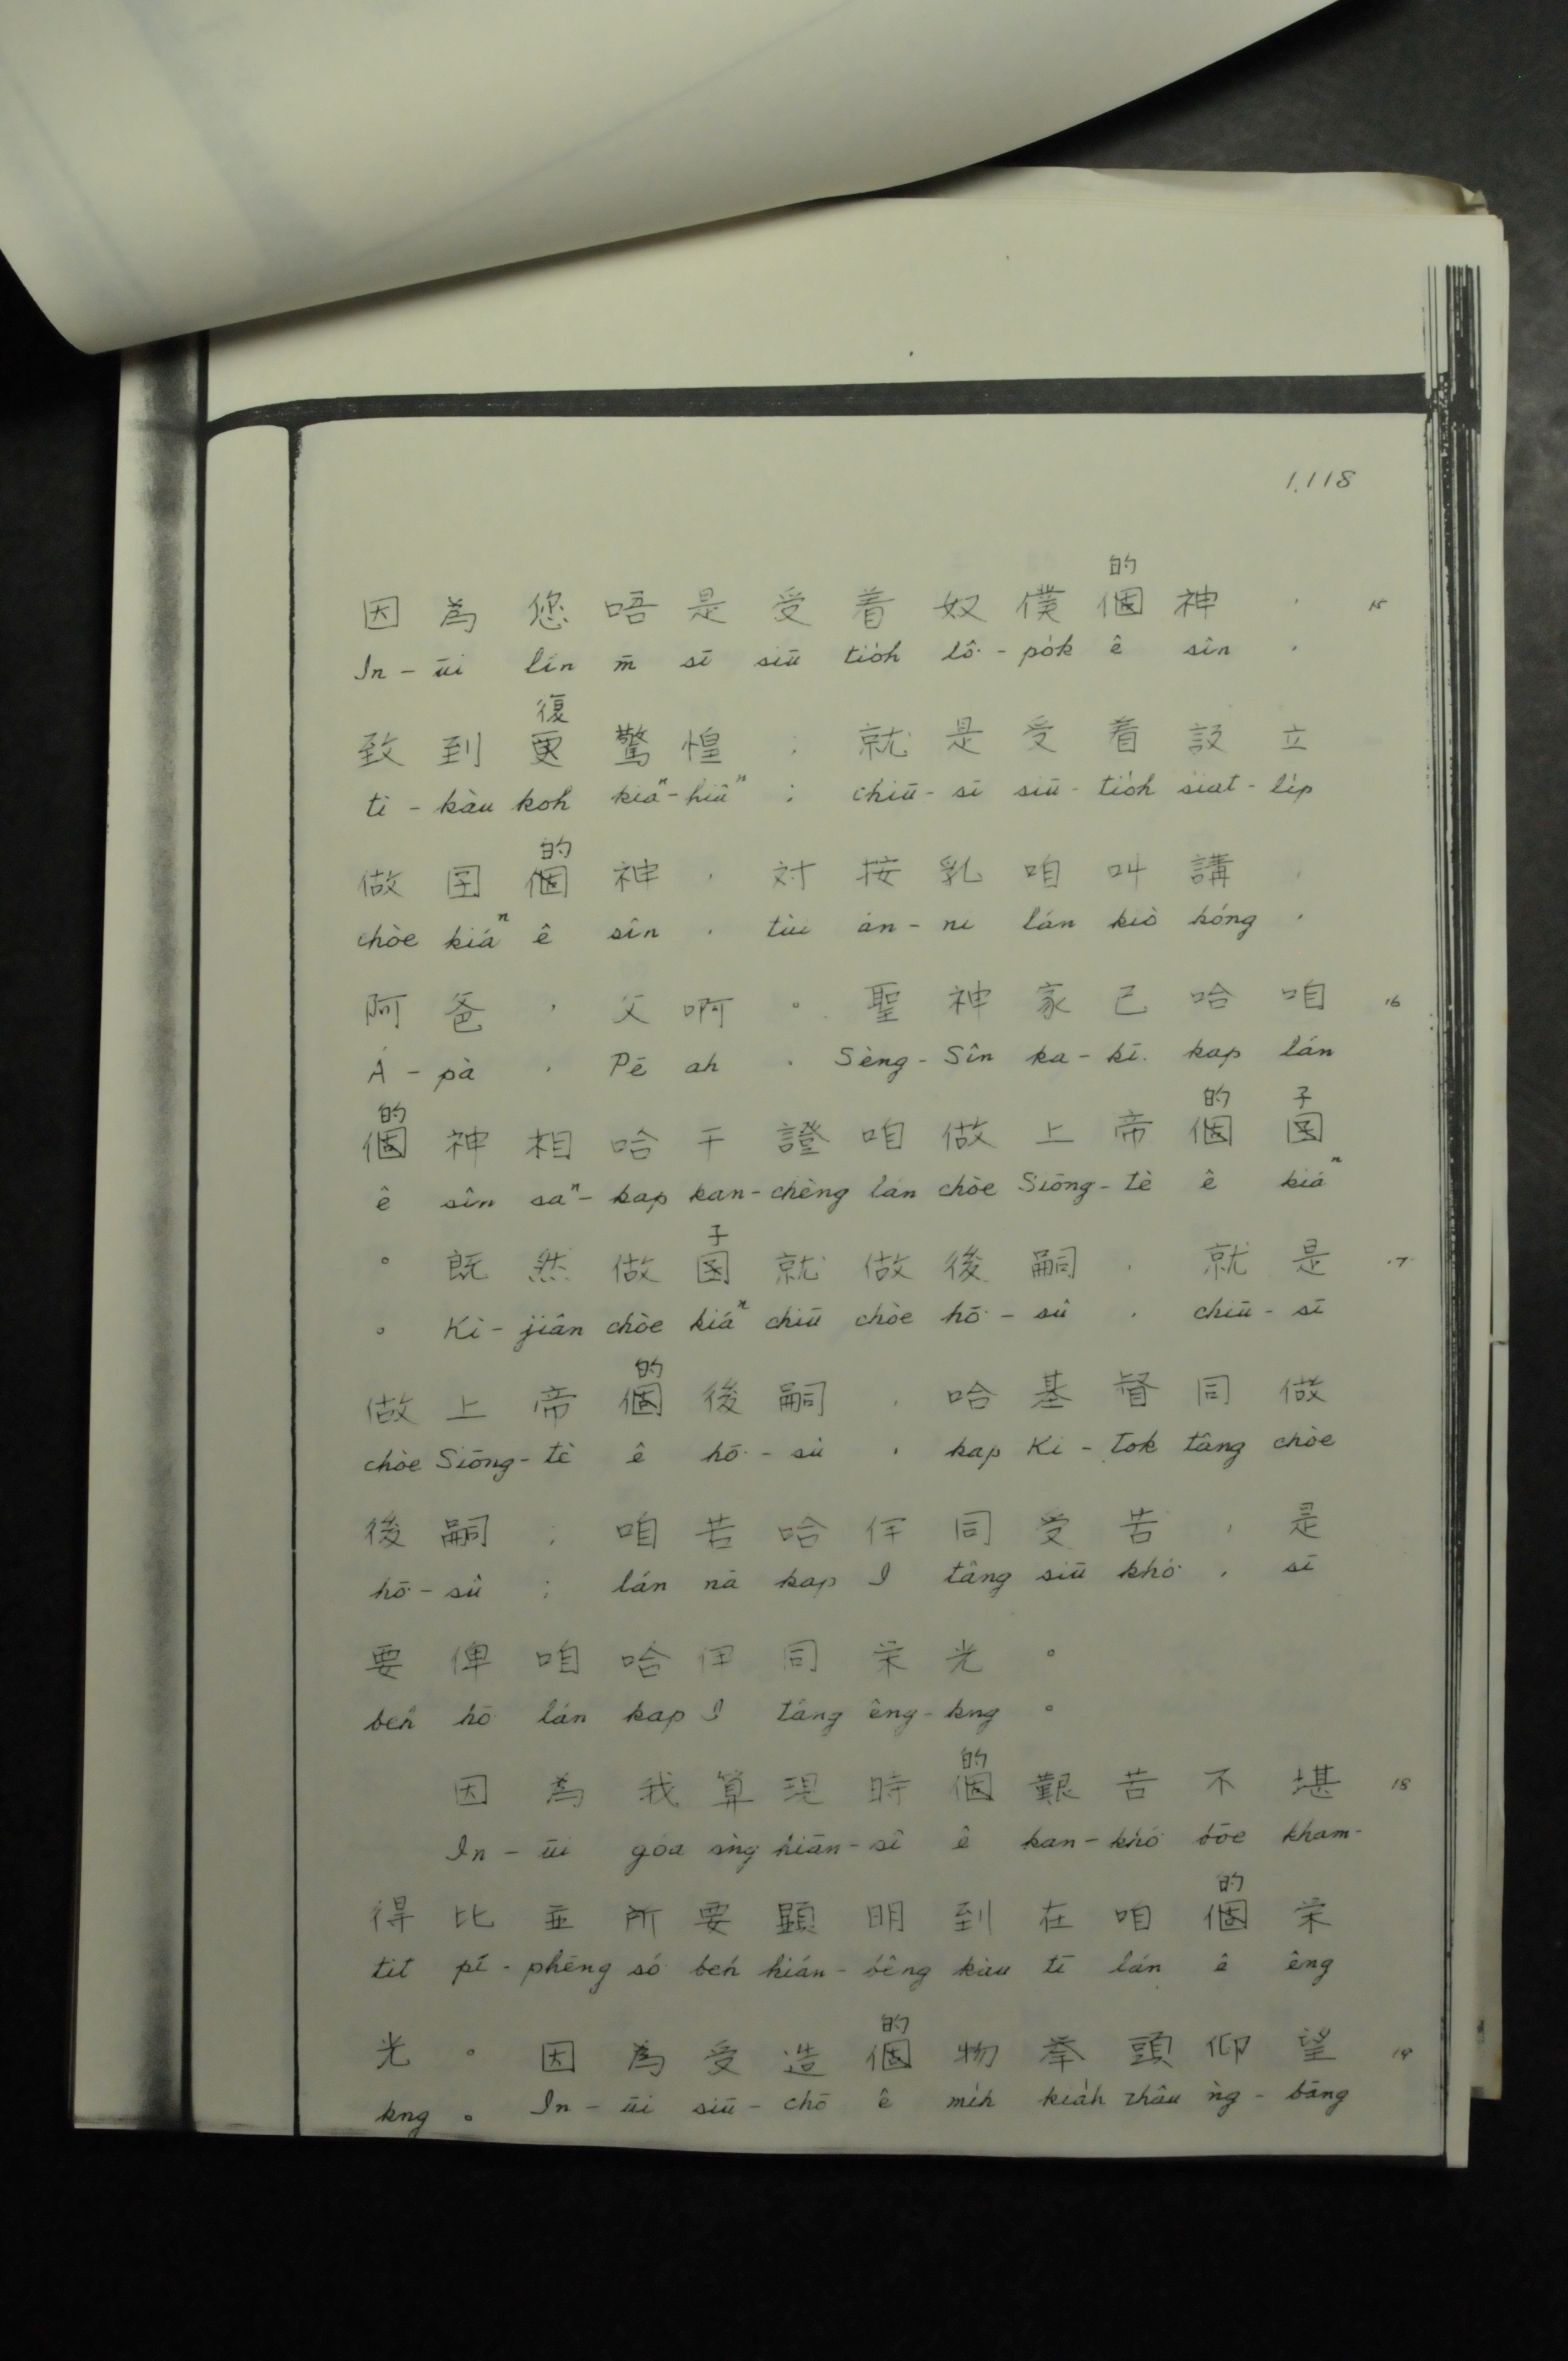 1,118
的
因為您唔是受着奴僕個神， 15
In-ūi lín m̄ sī siū tio̍h lô͘-po̍k ê sîn,
復
致到更驚惶；就是受着設立
tì-kàu koh kiaⁿ-hiâⁿ; chiū-sī siū-tio̍h siat-li̍p
的
做囝個神，対按乳咱叫講，
chòe kiáⁿ ê sîn, tùi án-ni lán kiò kóng,
阿爸，父啊。聖神家己哈咱 16
A-pà, Pē ah. Sèng-Sîn ka-kī kap lán
的 的 子
個神相哈干證咱做上帝個囝
ê sîn saⁿ-kap kan-chèng lán chòe Siōng-tè ê kiáⁿ
子
。既然做囝就做後嗣，就是 17
。Kì-jiân chòe kiáⁿ chiū chòe hō͘-sû, chiū-sī
的
做上帝個後嗣，哈基督同做
chòe Siōng-tè ê hō͘-sû, kap Ki-Tok tâng chòe
後嗣；咱若哈伊同受苦，是
hō͘-sû; lán nā kap I tâng siū khó͘, sī
要俾咱哈伊同荣光。
beh hō͘ lán kap I tâng êng-kng。
的
因為我算現時個艱苦不堪 18
In-ūi góa sǹg hiān-sî ê kan-khó͘ bōe kham-
的
得比並所要顕明到在咱個荣
tit pí-phēng só͘ beh hián-bêng kàu tī lán ê êng
的
光。因為受造個物举頭仰望 19
kng。In-ūi siū-chō ê mi̍h kia̍h thâu ǹg-bāng